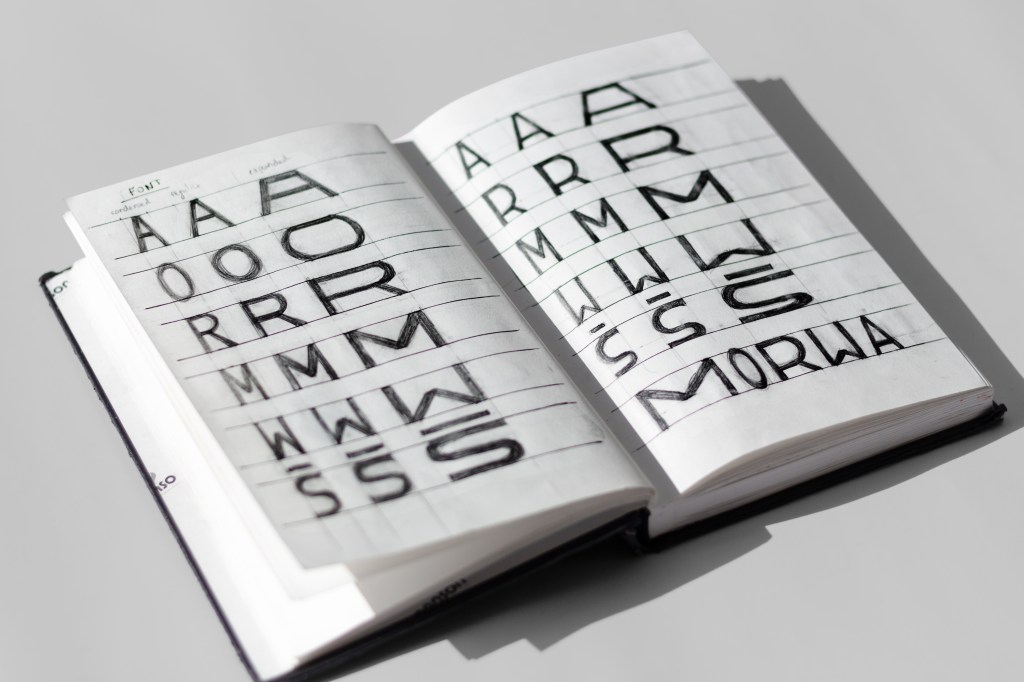 FONT
condensed regular expanded
A A A
O O O
R R R
M M M
W W W
S̄ S̄ S̄
A A A
R R R
M M M
W W W
S̄ S̄ S̄
MORWA